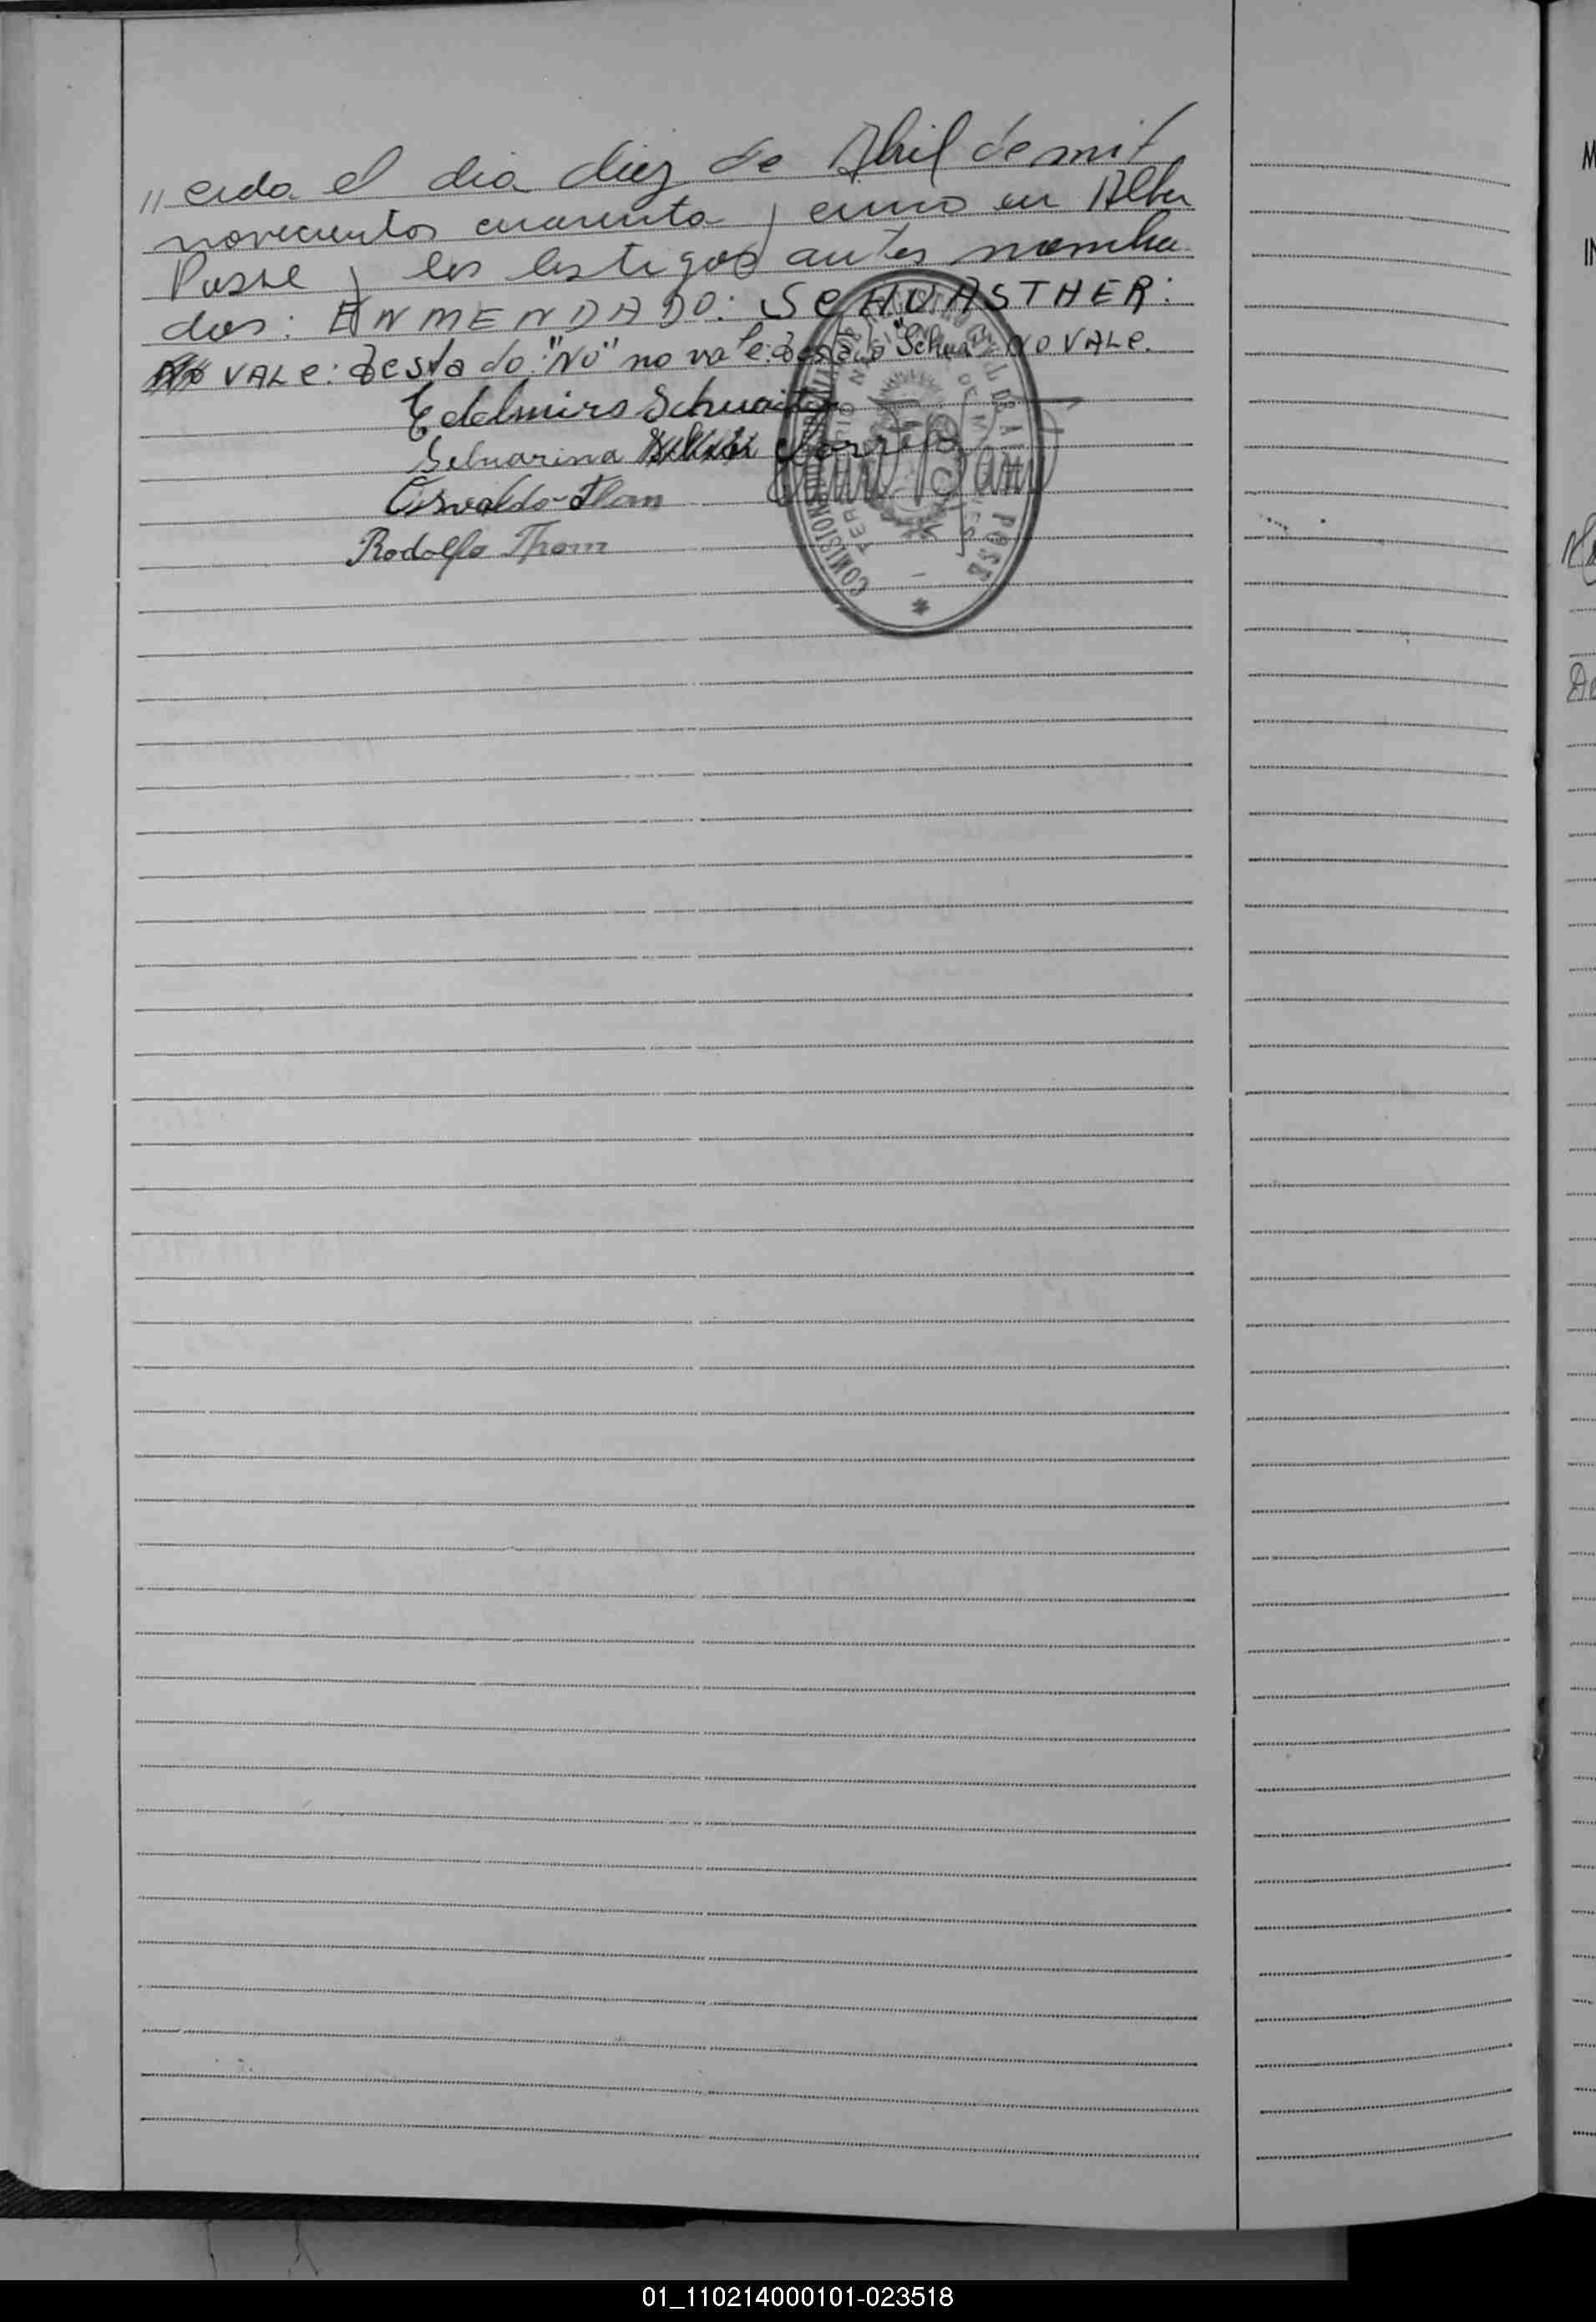 "cida el dia diez de Abril de mil
novecientos cuarenta y cinco en Alber
Posse y los testigos antes nombra
dos: ENMENDADO: SCHUASTHER:
VALe: Testado: "No" no vale: Testado "Schua" NO VALe.
Edelmiro Schuaster
Seluarina
Osvaldo Than
Rodolfo Thom
COMISION
POSSE
01_110214000101-023518